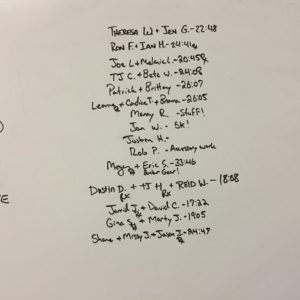 Theresa W + Jen G. - 22:48
Ron F. + Ian H. - 24:41
Joe L + Melanie L - 20:45 Rx
TJ C. + Beta W. - 24:08
Patrick + Brittany - 26:07
+ Candice T. + - 26:05
Mary R. - Stuff!
Jon W. - 5k!
Justin H. -
Rob P. - Accessory work
+ Eric S. - 33:46
Gear!
Dustin D. + TJ H. + REID W. - 18:08
Rx Rx
Jarrid J. + David C. - 17:22
Gina S. + Marty J. - 1905
Rx
Shane + Missy J. + Jason J. - 24:47